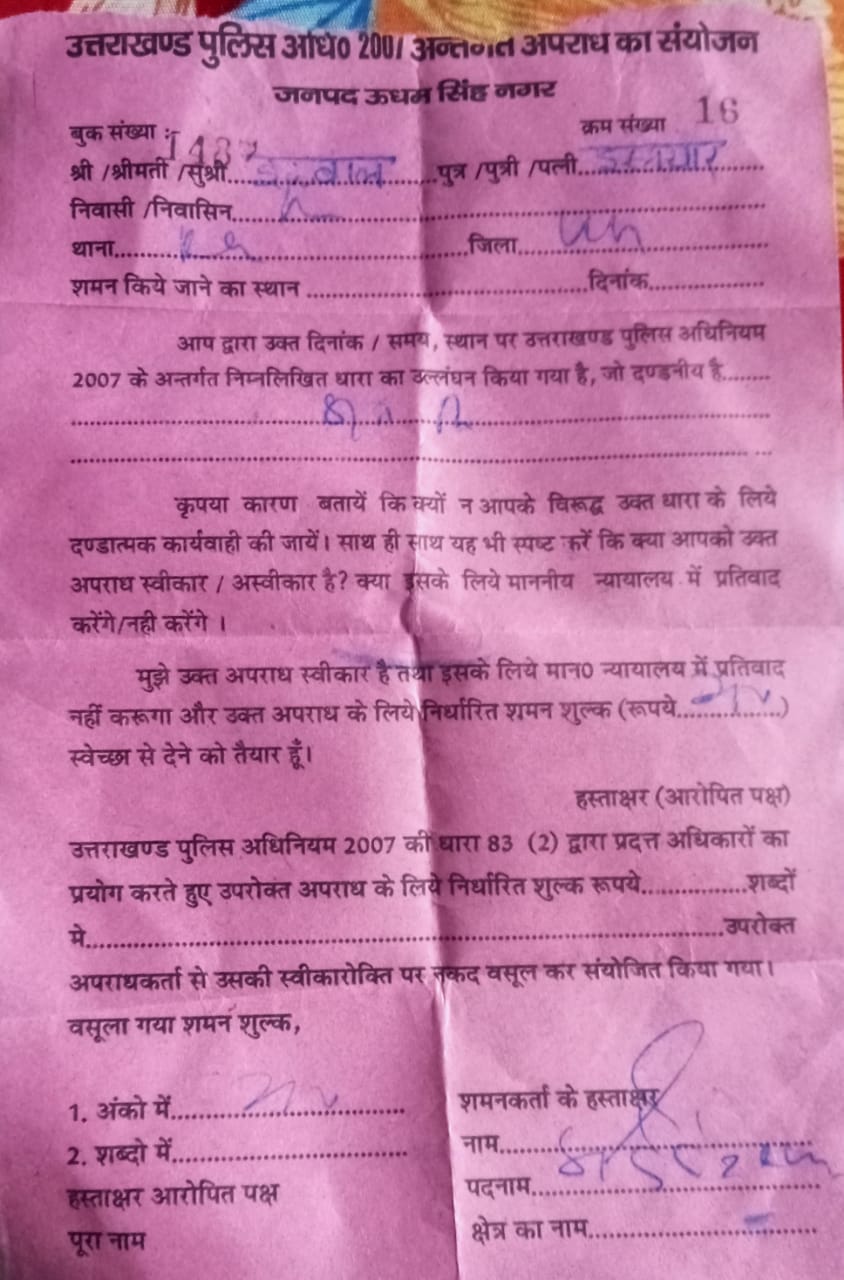 उत्तराखण्ड पुलिस अधि० 2007 अन्तर्गत अपराध का संयोजन
जनपद ऊधम सिंह नगर
बुक संख्या : 1487
क्रम संख्या 16
श्री /श्रीमती /सुश्री.............................पुत्र /पुत्री /पत्नी.............................
निवासी /निवासिन.............................
थाना.............................जिला.............................
शमन किये जाने का स्थान .............................दिनांक.............................
आप द्वारा उक्त दिनांक / समय, स्थान पर उत्तराखण्ड पुलिस अधिनियम
2007 के अन्तर्गत निम्नलिखित धारा का उल्लंघन किया गया है, जो दण्डनीय है........
कृपया कारण बतायें कि क्यों न आपके विरूद्ध उक्त धारा के लिये
दण्डात्मक कार्यवाही की जायें। साथ ही साथ यह भी स्पष्ट करें कि क्या आपको उक्त
अपराध स्वीकार / अस्वीकार है? क्या इसके लिये माननीय न्यायालय में प्रतिवाद
करेंगे/नही करेंगे ।
मुझे उक्त अपराध स्वीकार है तथा इसके लिये मान० न्यायालय में प्रतिवाद
नहीं करूगा और उक्त अपराध के लिये निर्धारित शमन शुल्क (रूपये................)
स्वेच्छा से देने को तैयार हूँ।
हस्ताक्षर (आरोपित पक्ष)
उत्तराखण्ड पुलिस अधिनियम 2007 की धारा 83 (2) द्वारा प्रदत्त अधिकारों का
प्रयोग करते हुए उपरोक्त अपराध के लिये निर्धारित शुल्क रूपये................शब्दों
मे.............................उपरोक्त
अपराधकर्ता से उसकी स्वीकारोक्ति पर नकद वसूल कर संयोजित किया गया।
वसूला गया शमन शुल्क,
1. अंको में.............................
शमनकर्ता के हस्ताक्षर
2. शब्दो में.............................
नाम.............................
हस्ताक्षर आरोपित पक्ष
पदनाम.............................
पूरा नाम
क्षेत्र का नाम.............................